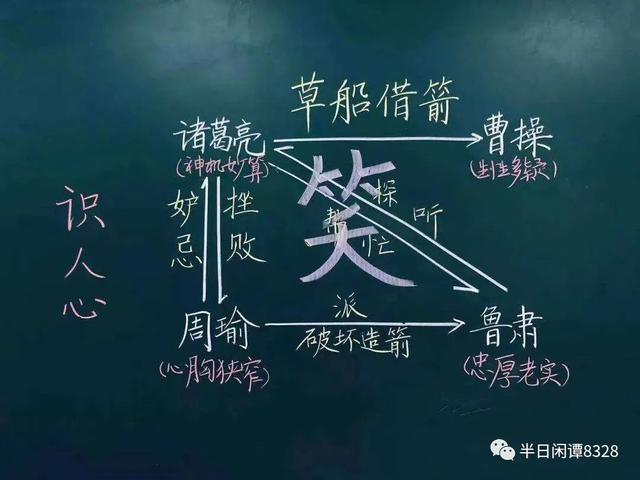 草船借箭
诸葛亮
曹操
(神机妙算)
(生性多疑)
笑
识人心
妒忌
挫败
探听
帮忙
派
周瑜
鲁肃
破坏造箭
(心胸狭窄)
(忠厚老实)
半日闲谭8328